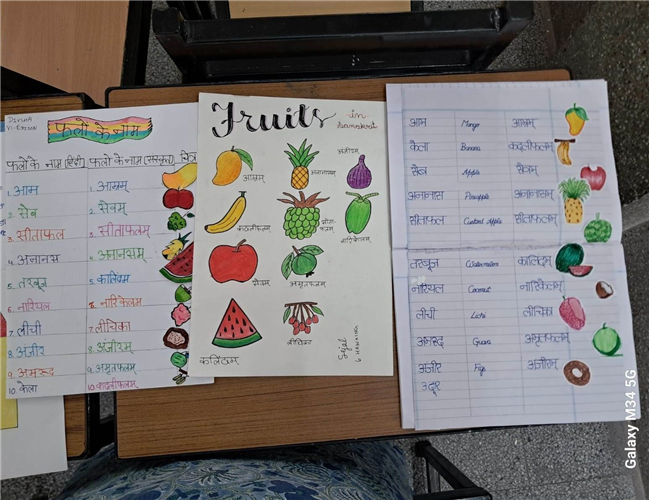 DIVSHA
फलों के नाम
फलों के नाम (हिन्दी) फलों के नाम (संस्कृत) चित्र
1. आम 1. आम्रम्
2. सेब 2. सेवम्
3. सीताफल 3. सीताफलम्
4. अनानस 4. अनानसम्
5. तरबूज 5. कालिंदम
6. नारियल 6. नारिकेलम
7. लीची 7. लीचिका
8. अंजीर 8. अंजीरम्
9. अमरूद 9. अमृतफलम्
10. केला 10. कदलीफलम्
Fruits
in
Sanskrit
आम्रम्
अनानासम्
अंजीरम्
कदलीफलम्
सीता-
फलम्
नारिकेलम्
सेवम्
अमृतफलम्
कलिंदम
लीचिका
Sejal
6 HIMALAYA
आम Mango आम्रम्
केला Banana कदलीफलम्
सेब Apple सेवम्
अनानास Pineapple अनानासम्
सीताफल Custard Apple सीताफलम्
तरबूज Watermelon कालिंदम्
नारियल Coconut नारिकेलम्
लीची Lichi लीचिका
अमरूद Guava अमृतफलम्
अंजीर Figs अंजीरम्
Galaxy M34 5G